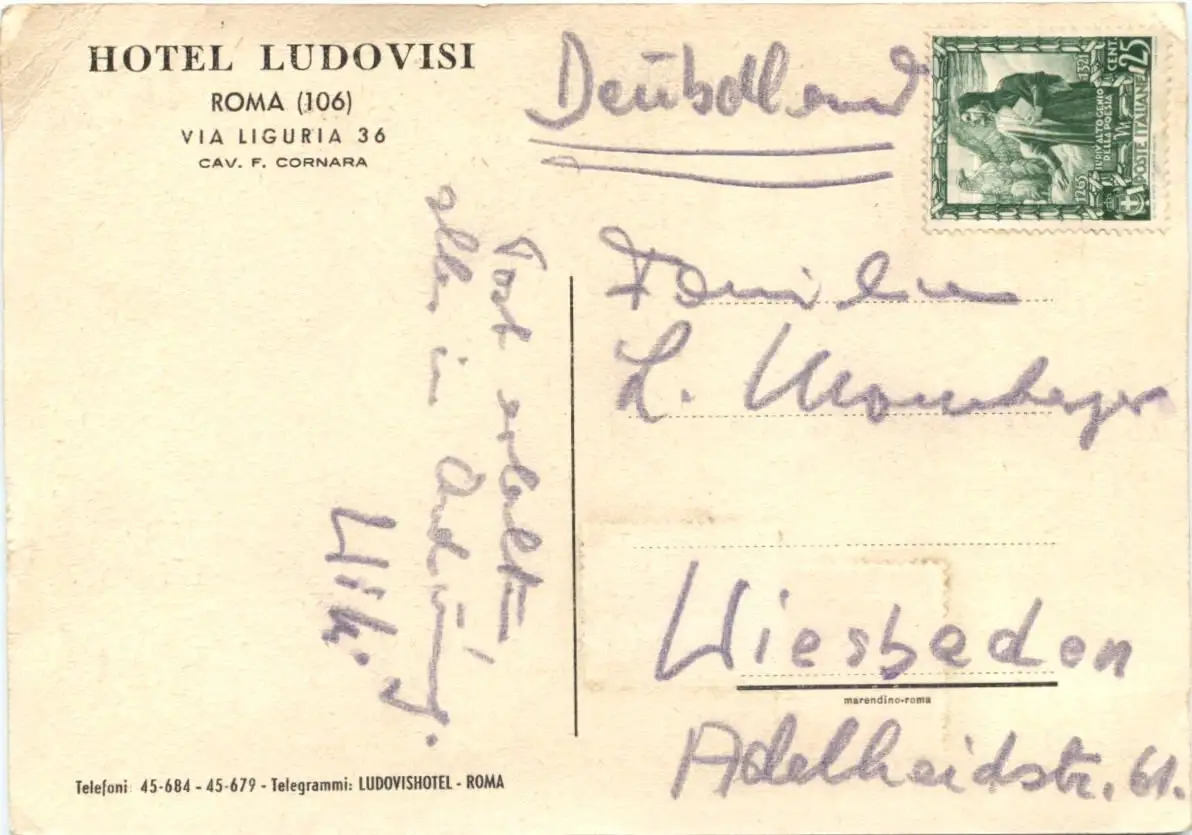 HOTEL LUDOVISI
ROMA (106)
VIA LIGURIA 36
CAV. F. CORNARA
Deutschland
1265 1321
L'RIV ALTO GENIO
DELLA POESIA
POSTE ITALIANE
CENT. 25
Familie
L. Momberger
Wiesbaden
Adelheidstr. 61.
marendino-roma
Post erhalten,
alles in Ordnung.
Willi.
Telefoni 45-684 - 45-679 - Telegrammi: LUDOVISHOTEL - ROMA